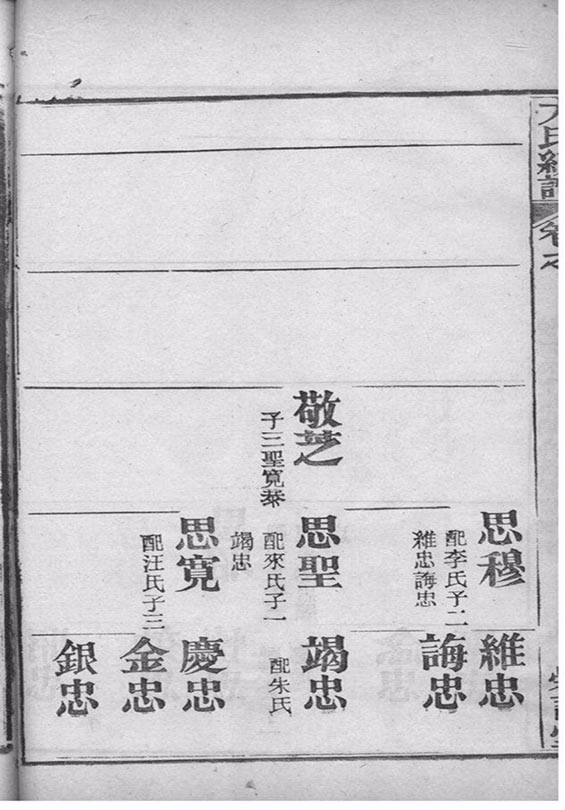 氏
卷之
敬芝
子三聖寬
思穆
配李氏子二
維忠誨忠
思聖
配來氏子一
竭忠
思寬
配汪氏子三
維忠
誨忠
竭忠
配朱氏
慶忠
金忠
銀忠